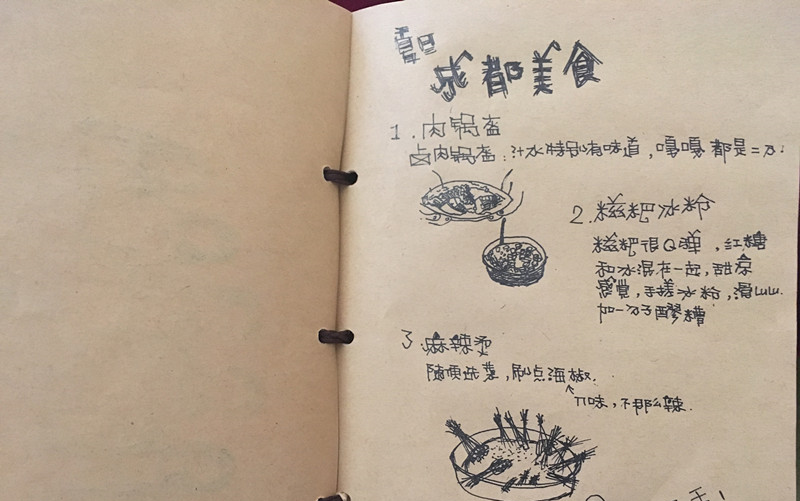 成都美食
1. 肉锅盔
卤肉锅盔:汁水特别有味道,嘎嘎都是二刀
2. 糍粑冰粉
糍粑很Q弹,红糖
和冰混在一起,甜凉
感觉,手搓冰粉,滑LuLu.
加一勺子醪糟
3. 麻辣烫
随便选菜,刷点海椒.
不那么辣.